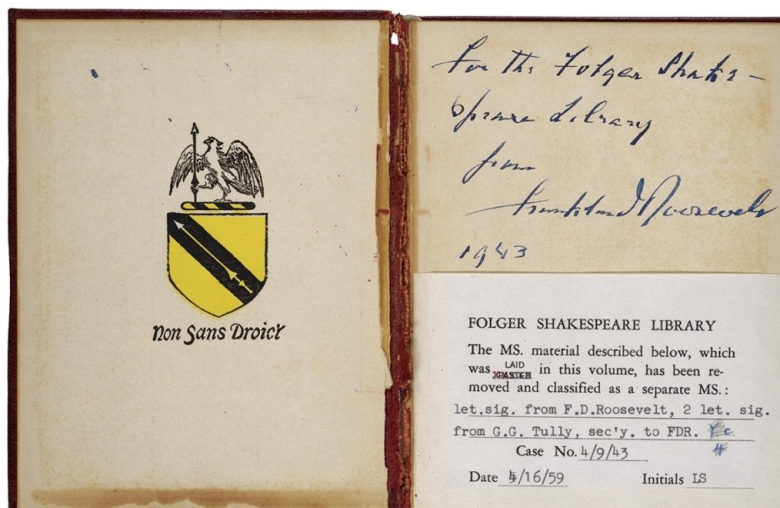 Non Sans Droict
For the Folger Shake-
speare Library
from
Franklin D Roosevelt
1943
FOLGER SHAKESPEARE LIBRARY
The MS. material described below, which
was LAID in this volume, has been re-
moved and classified as a separate MS.:
let.sig. from F.D.Roosevelt, 2 let. sig.
from G.G. Tully, sec'y. to FDR. Y.c.
Case No. 4/9/43 4
Date 4/16/59 Initials LS